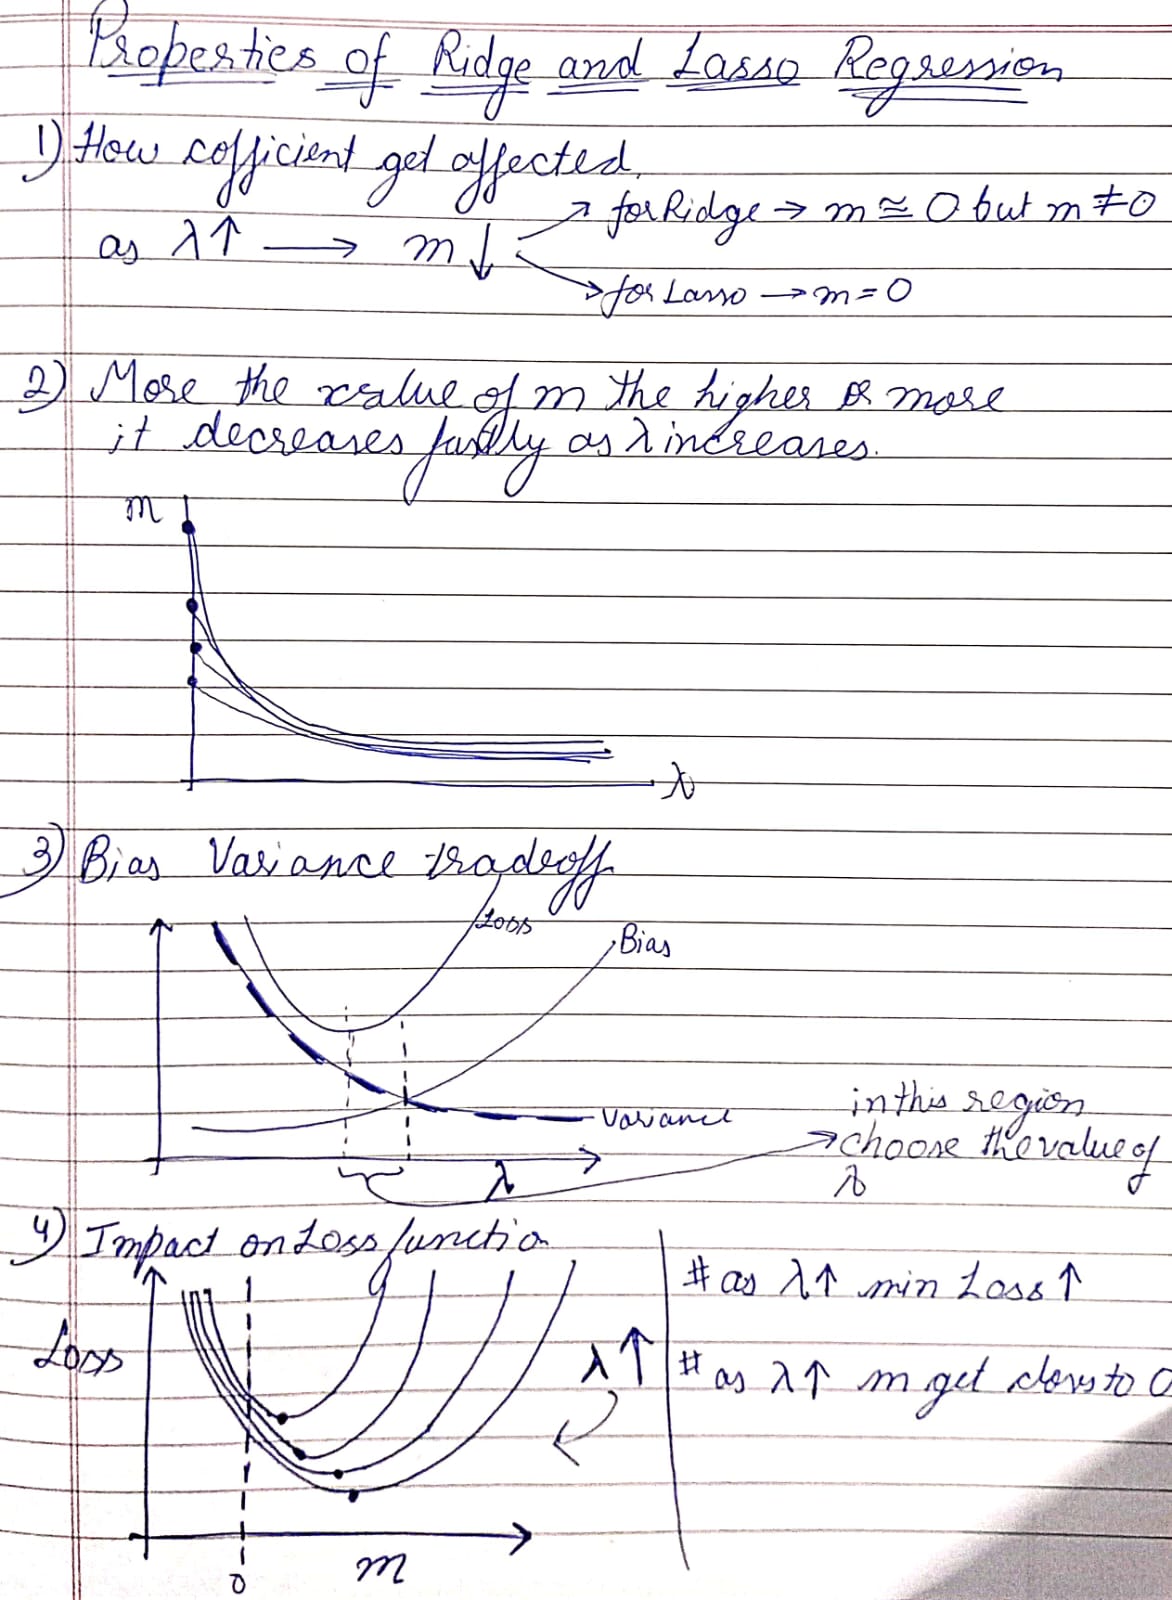 Properties of Ridge and Lasso Regression
1) How cofficient get affected.
as λ↑ → m↓
for Ridge → m ≅ 0 but m ≠ 0
for Lasso → m = 0
2) More the value of m the higher or more
it decreases fastly as λ increases.
m
λ
3) Bias Variance tradeoff
Loss
Bias
Variance
λ
in this region
choose the value of
λ
4) Impact on Loss functio
Loss
λ↑
0
m
# as λ↑ min Loss ↑
# as λ↑ m get closs to 0